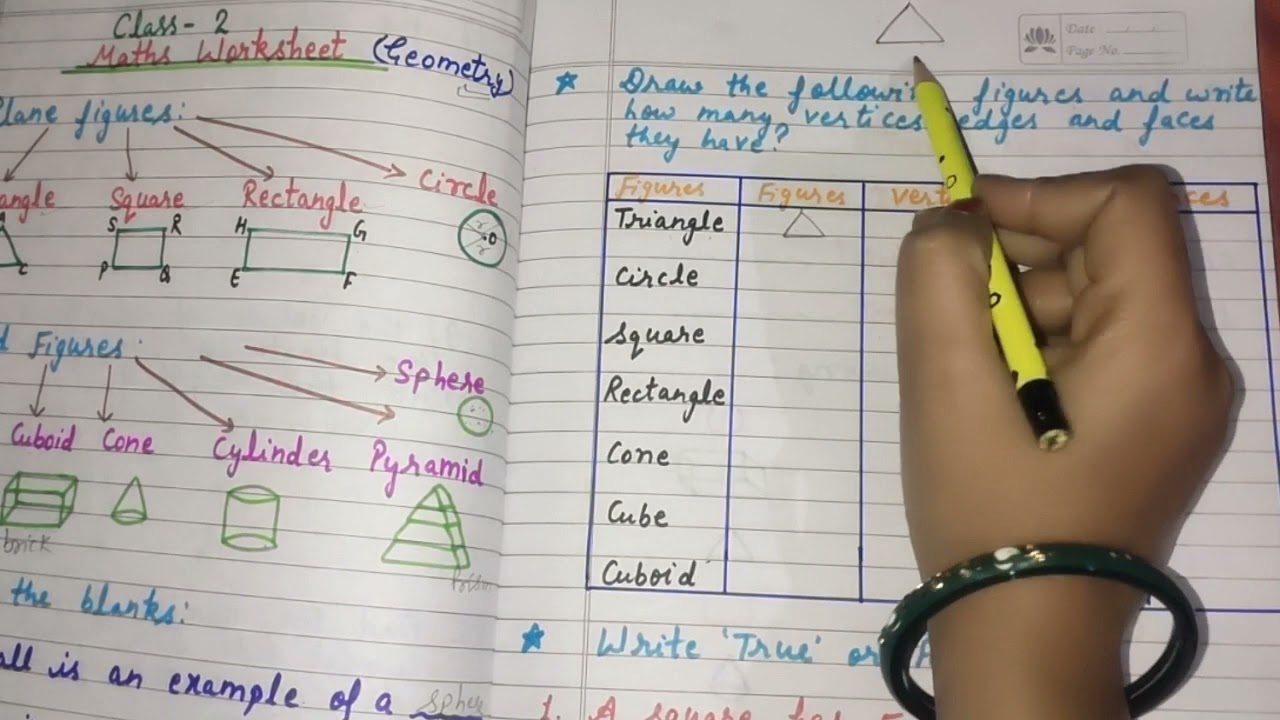 Class-2
Maths Worksheet (Geometry)
figures:
Square
Rectangle
Circle
S R
P Q
H G
E F
C
O
Figures
Sphere
Cuboid Cone Cylinder Pyramid
brick
the blanks:
is an example of a sphere
Date
Page No.
Draw the following figures and write
how many vertices, edges and faces
they have?
Figures Figures
Triangle
Circle
Square
Rectangle
Cone
Cube
Cuboid
Write 'True' or
1. A square has